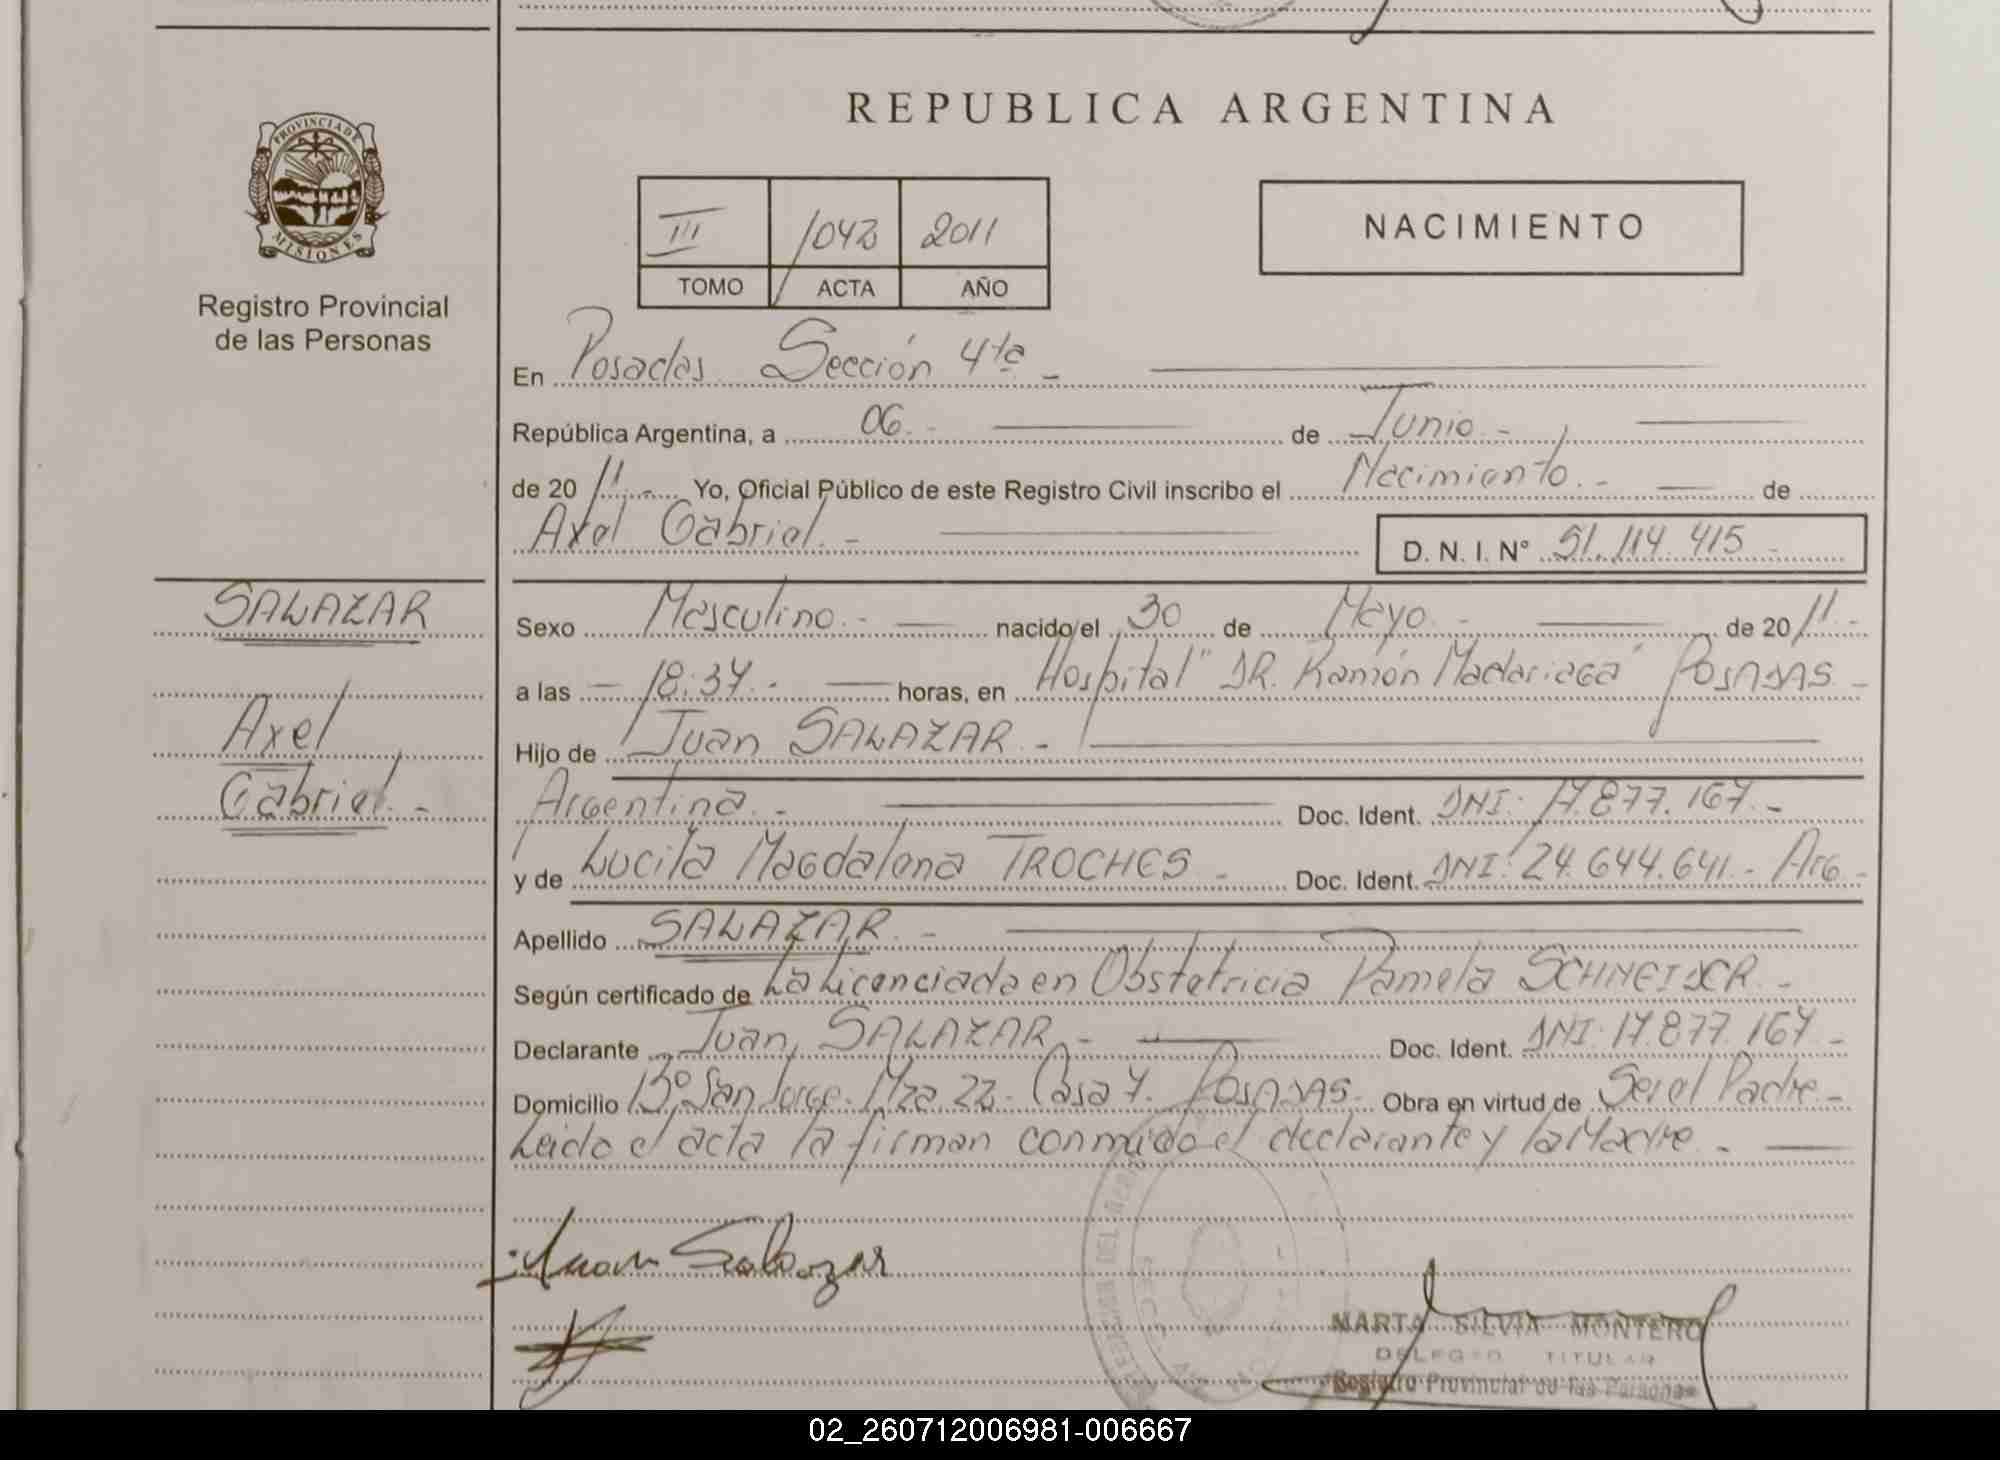 PROVINCIA DE
MISIONES
Registro Provincial
de las Personas
SALAZAR
Axel
Gabriel.-
REPUBLICA ARGENTINA
III 1042 2011
TOMO ACTA AÑO
NACIMIENTO
En Posadas Sección 4ta -
República Argentina, a 06.- de Junio.-
de 20 11.- Yo, Oficial Público de este Registro Civil inscribo el Nacimiento.- de
Axel Gabriel.- D. N. I. N° 51.114.415 -
Sexo Masculino.- nacido el 30 de Mayo.- de 20 11.-
a las - 18:34.- horas, en Hospital "DR. Ramón Madariaga" POSADAS.-
Hijo de Juan SALAZAR.-
Argentina.- Doc. Ident. DNI: 17.877.167.-
y de Lucila Magdalena TROCHES.- Doc. Ident. DNI: 24.644.641.- Arg.-
Apellido SALAZAR.-
Según certificado de La Licenciada en Obstetricia Pamela SCHNEIDER.-
Declarante Juan SALAZAR.- Doc. Ident. DNI: 17.877.167.-
Domicilio B° San Jorge. Mza 22- Casa 7. POSADAS.- Obra en virtud de Ser el Padre.-
Leido el acta la firman conmigo el declarante y la Madre.-
Juan Salazar
MARTA SILVIA MONTERO
DELEGADO TITULAR
Registro Provincial de las Personas
02_260712006981-006667